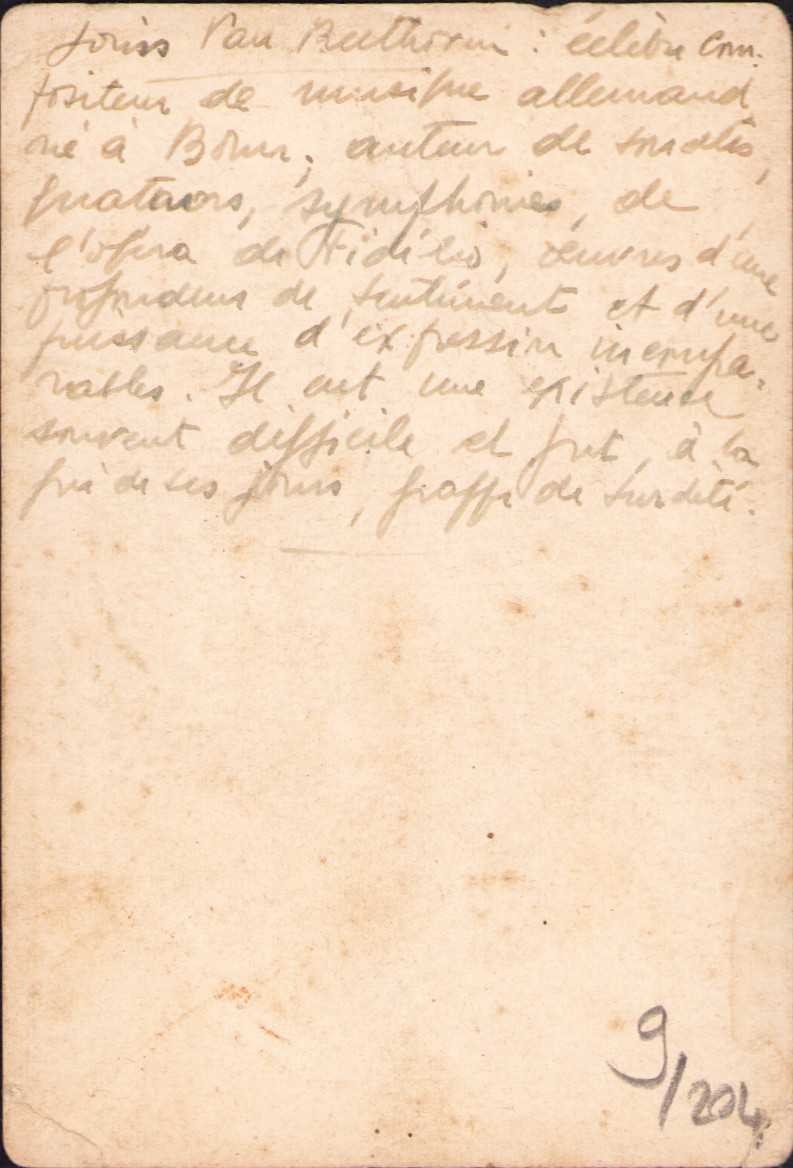 Louiss Van Beethoven : célèbre com-
positeur de musique allemand
né à Bonn ; auteur de sonates,
quatuors, symphonies, de
l'opéra de Fidélio, œuvres d'une
profondeur de sentiment et d'une
puissance d'expression incompa-
rables. Il eut une existence
souvent difficile et fut, à la
fin de ses jours, frappé de surdité.
9/204